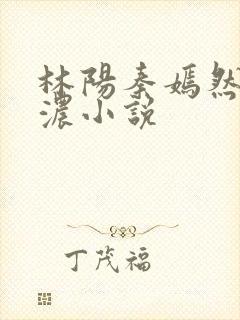 林陽秦嫣然
濃小說
丁茂福